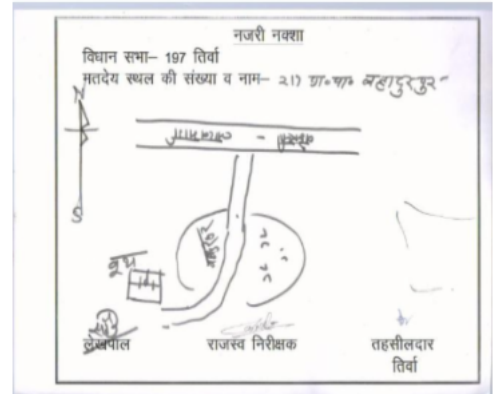 नजरी नक्शा
विधान सभा– 197 तिर्वा
मतदेय स्थल की संख्या व नाम– 21) प्रा॰पा॰ बहादुरपुर
N
S
बहादुरपुर
बूथ
लेखपाल
राजस्व निरीक्षक
तहसीलदार
तिर्वा